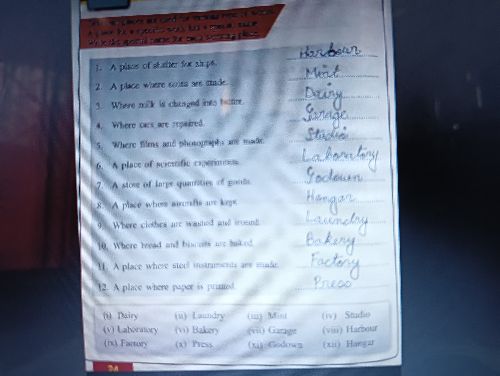 1. A place of shelter for ships. Harbour
2. A place where coins are made. Mint
3. Where milk is changed into butter. Dairy
4. Where cars are repaired. Garage
5. Where films and photographs are made. Studio
6. A place of scientific experiments. Laboratory
7. A store of large quantities of goods. Godown
8. A place where aircrafts are kept. Hangar
9. Where clothes are washed and ironed. Laundry
10. Where bread and biscuits are baked. Bakery
11. A place where steel instruments are made. Factory
12. A place where paper is printed. Press
(i) Dairy (ii) Laundry (iii) Mint (iv) Studio
(v) Laboratory (vi) Bakery (vii) Garage (viii) Harbour
(ix) Factory (x) Press (xi) Godown (xii) Hangar
24